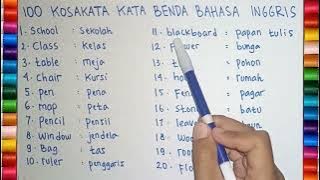 100 KOSAKATA KATA BENDA BAHASA INGGRIS
1. School = sekolah
2. Class = kelas
3. table = meja
4. Chair = kursi
5. pen = pena
6. map = peta
7. pencil = pensil
8. Window = jendela
9. Bag = tas
10. ruler = penggaris
11. blackboard = papan tulis
12. = bunga
13. = pohon
14. = rumah
15. = pagar
16. = batu
17.
18.
19.
20.